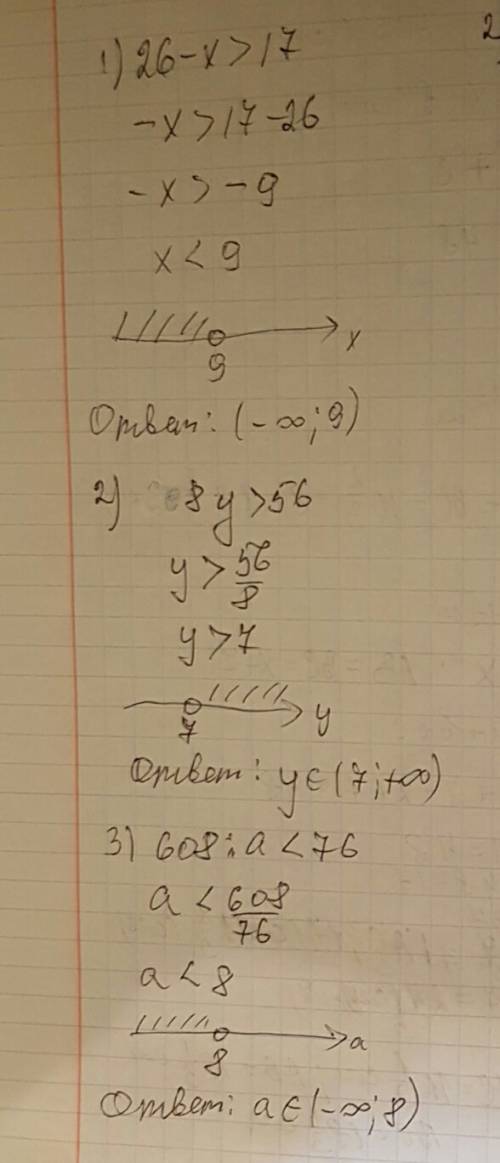 1) 26-x>17
-x>17-26
-x>-9
x<9
x
9
Ответ: (-∞; 9)
2) 8y>56
y>56/8
y>7
7 y
Ответ: y∈(7;+∞)
3) 608:a<76
a<608/76
a<8
a
8
Ответ: a∈(-∞;8)